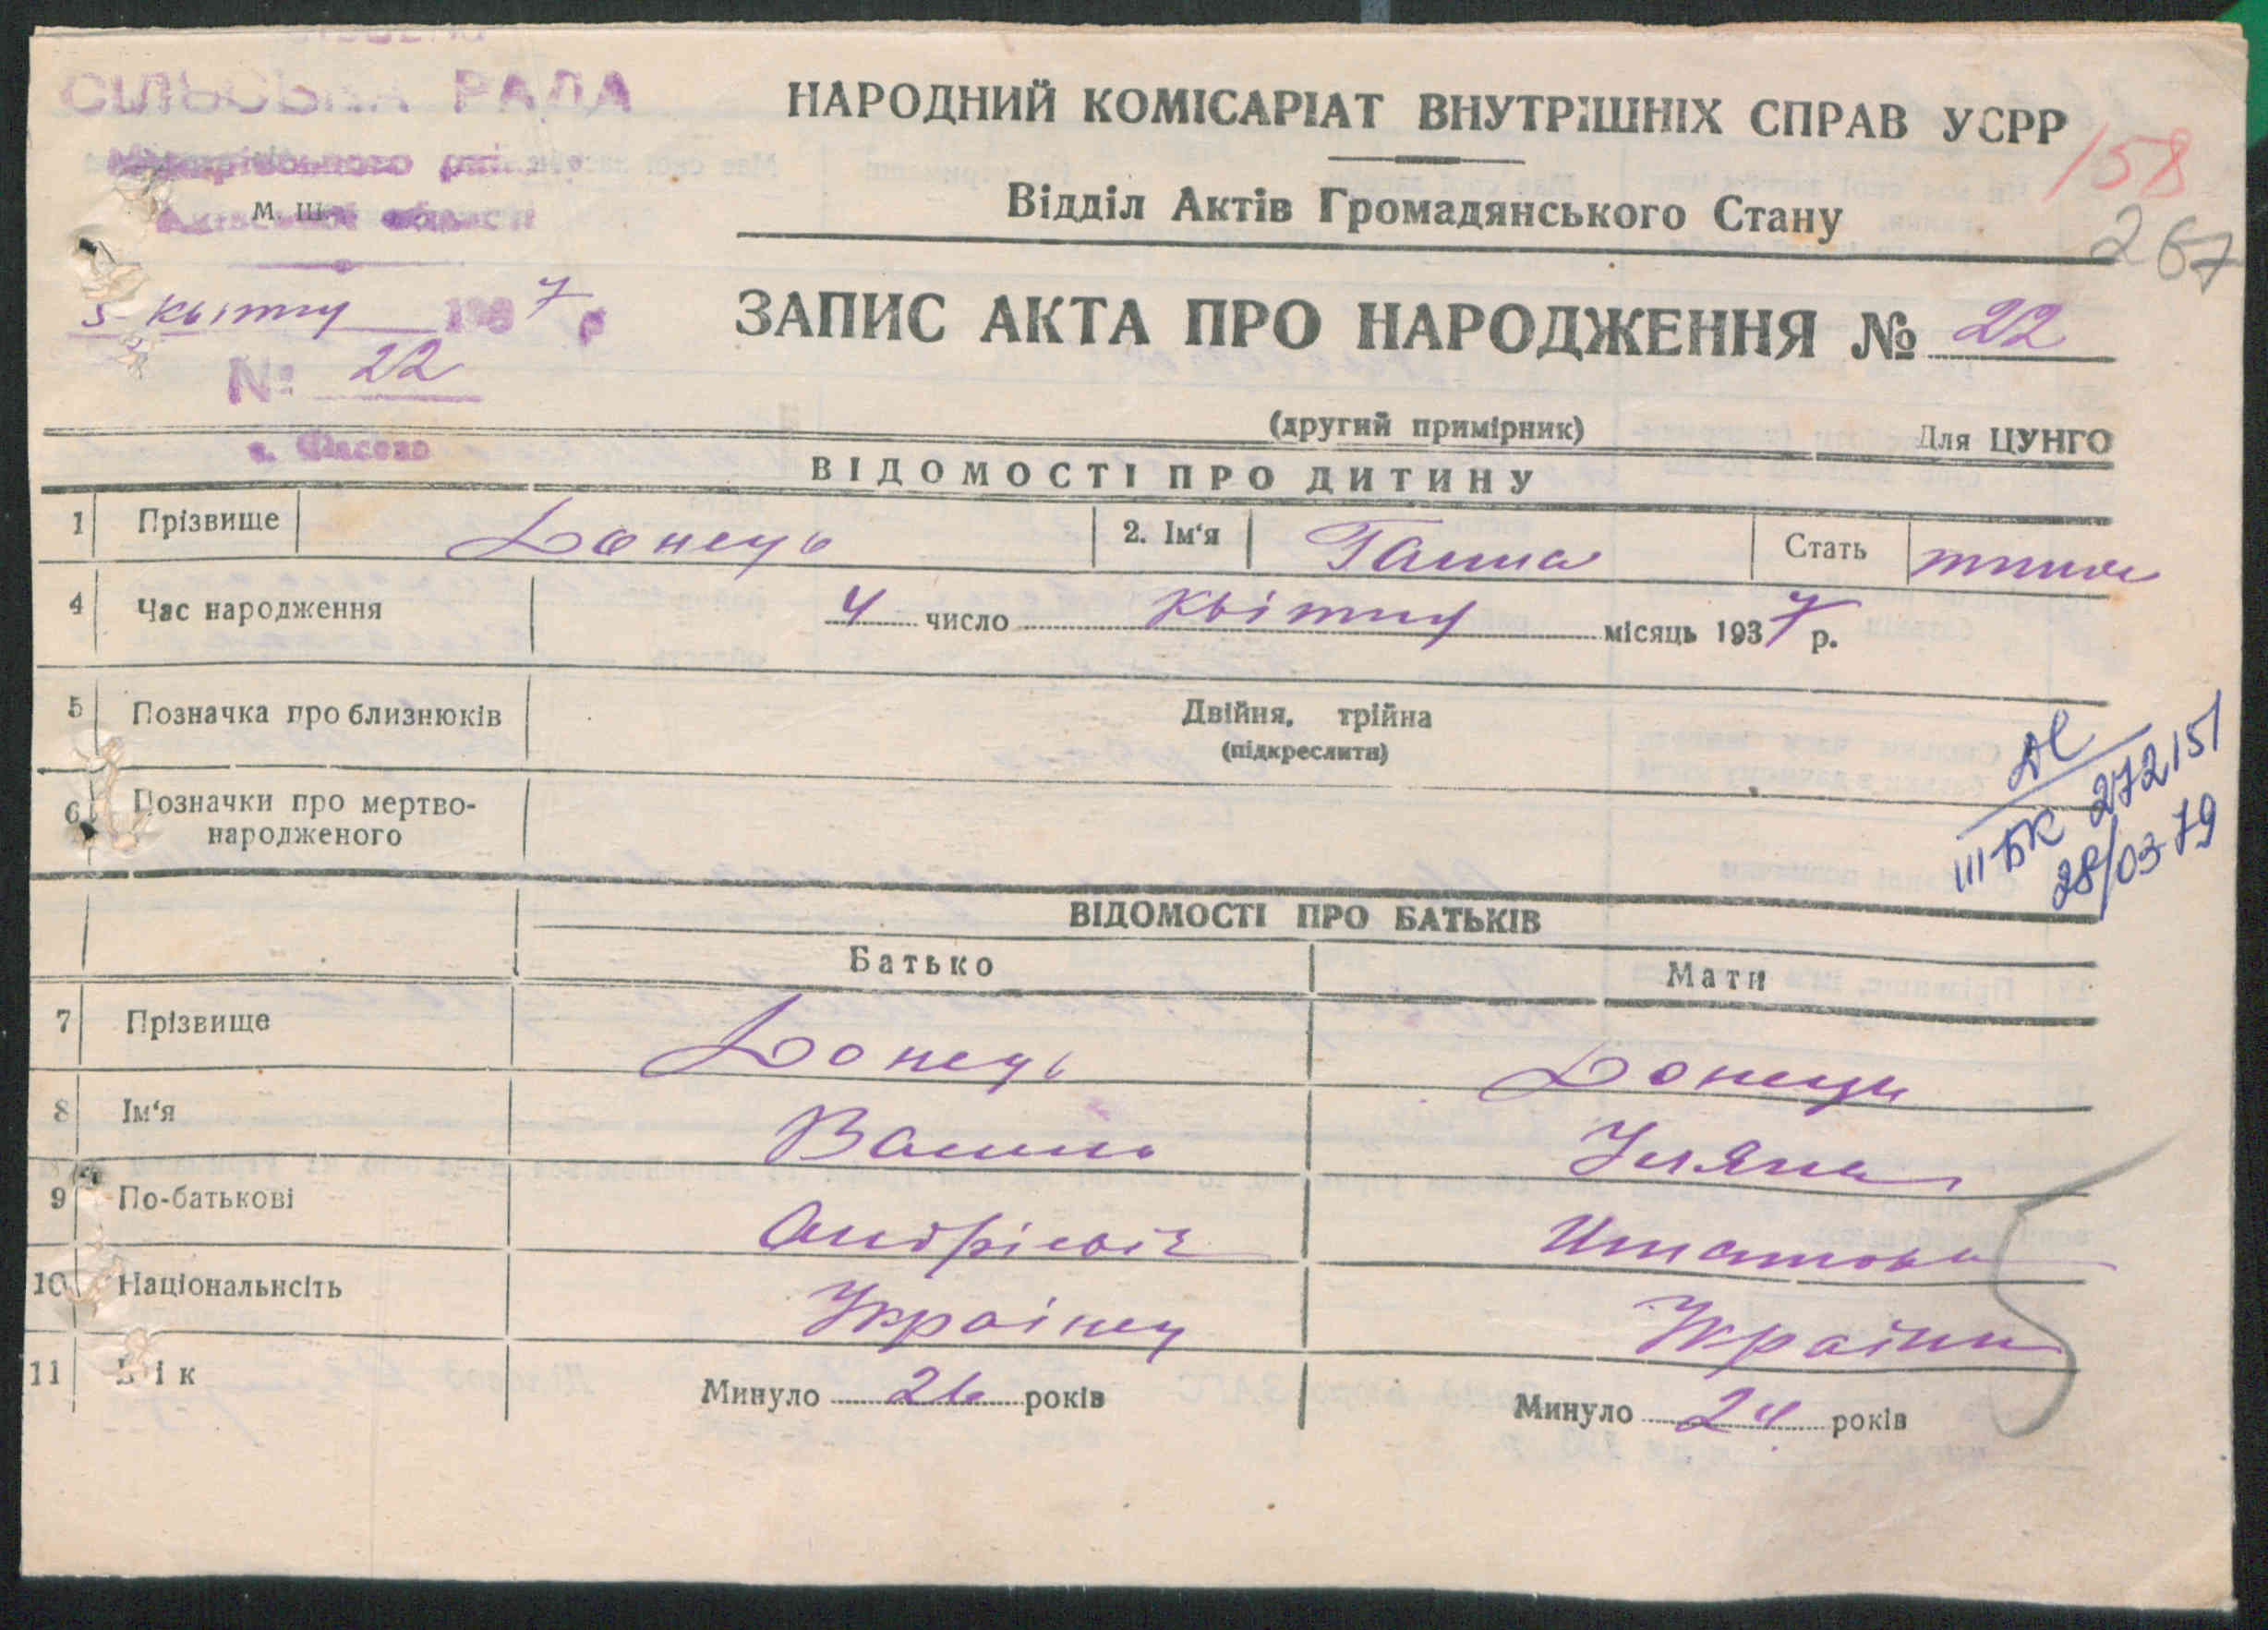 СІЛЬСЬКА РАДА
НАРОДНИЙ КОМІСАРІАТ ВНУТРІШНІХ СПРАВ УСРР
158
М. Ш.
Відділ Актів Громадянського Стану
267
5 квітну 1937 р
ЗАПИС АКТА ПРО НАРОДЖЕННЯ № 22
№ 22
(другий примірник) Для ЦУНГО
с. Фасова
ВІДОМОСТІ ПРО ДИТИНУ
1 Прізвище Донець 2. Ім‘я Ганна Стать
4 Час народження 4 число квітну місяць 1937 р.
5 Позначка про близнюків Двійня, трійна
(підкреслити)
6 Позначки про мертво-
народженого
ІІІ-БК 272151
28/03-79
ВІДОМОСТІ ПРО БАТЬКІВ
Батько Мати
7 Прізвище Донець Донець
8 Ім‘я Василь Уляна
9 По-батькові Андрієвіч
10 Національнсіть Українец Україн
11 Вік Минуло 26 років Минуло 24 років